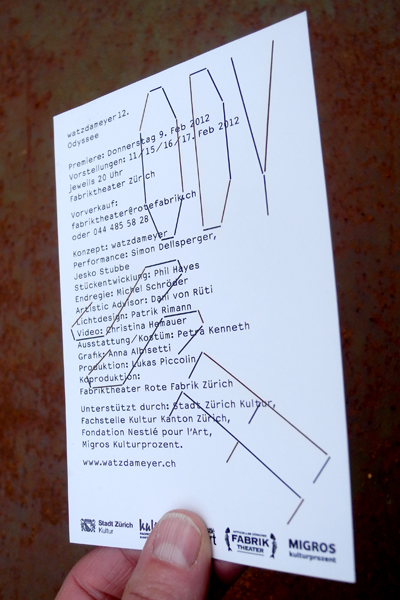 watzdameyer 12.
Odyssee
Premiere: Donnerstag 9. Feb 2012
Vorstellungen: 11/15/16/17. Feb 2012
jeweils 20 Uhr
Fabriktheater Zürich
Vorverkauf:
fabriktheater@rotefabrik.ch
oder 044 485 58 28
Konzept: watzdameyer
Performance: Simon Dellsperger,
Jesko Stubbe
Stückentwicklung: Phil Hayes
Endregie: Michel Schröder
Artistic Advisor: Dani von Rüti
Lichtdesign: Patrik Rimann
Video: Christina Hemauer
Ausstattung / Kostüm: Petra Kenneth
Grafik: Anna Albisetti
Produktion: Lukas Piccolin
Koproduktion:
Fabriktheater Rote Fabrik Zürich
Unterstützt durch: Stadt Zürich Kultur,
Fachstelle Kultur Kanton Zürich,
Fondation Nestlé pour l'Art,
Migros Kulturprozent.
www.watzdameyer.ch
Stadt Zürich
Kultur
FABRIK
THEATER
MIGROS
kulturprozent